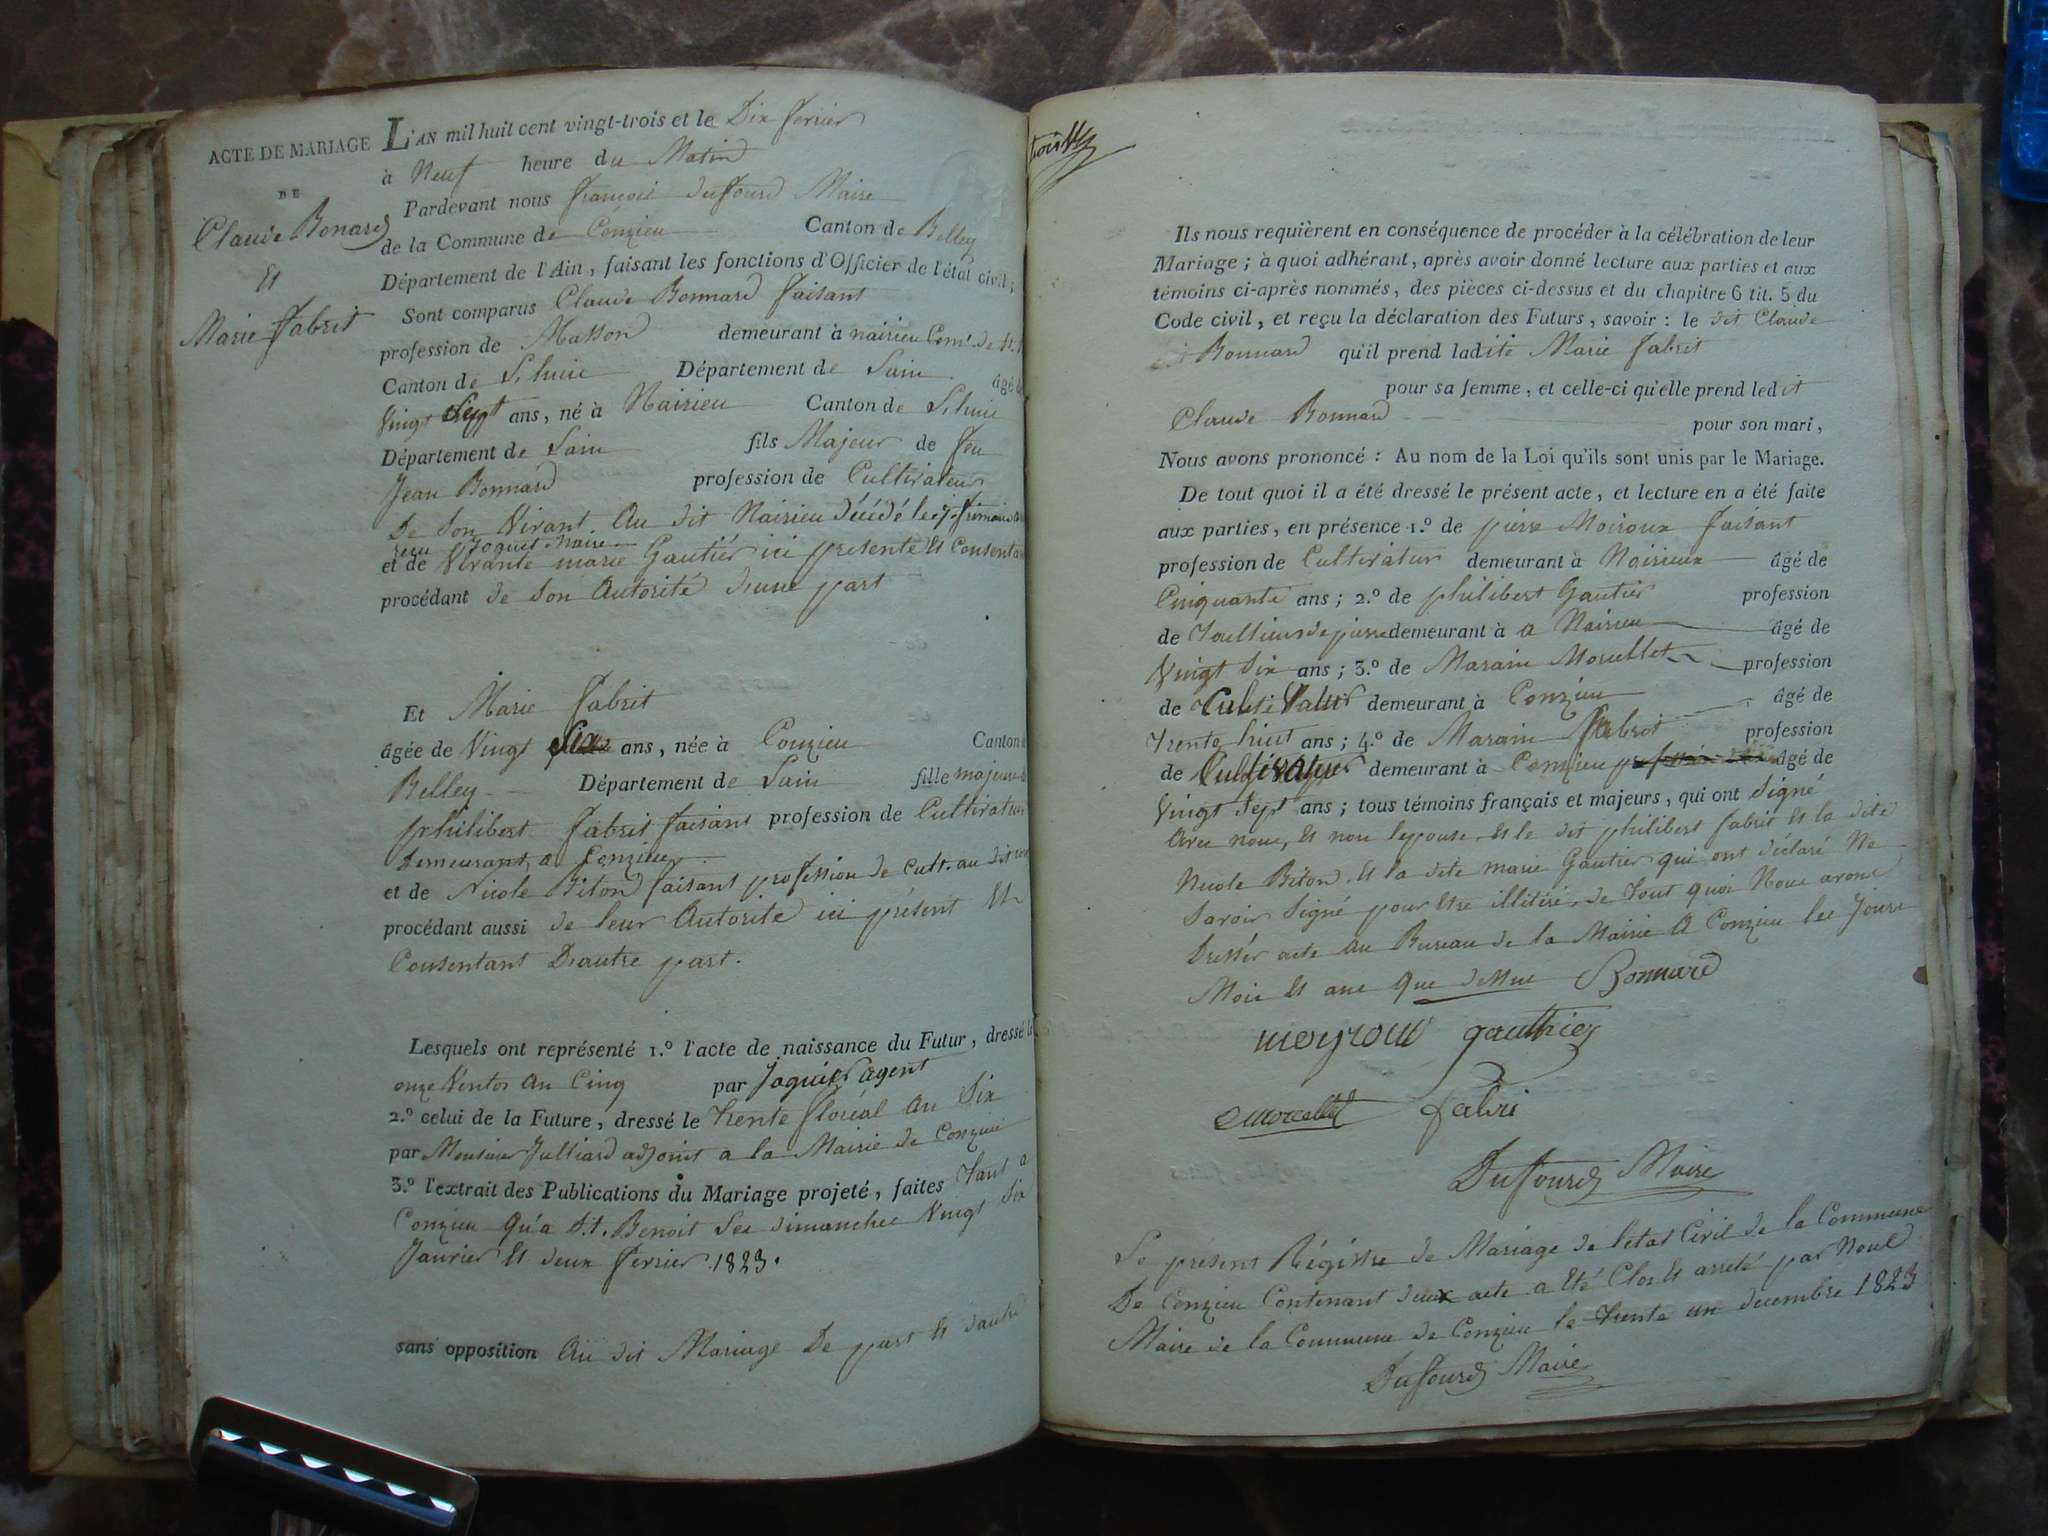 ACTE DE MARIAGE
DE
Claude Bonard
Et
Marie fabrit
L'AN mil huit cent vingt-trois et le Dix fevrier
à Neuf heure du Matin
Pardevant nous françois duffourd Maire
de la Commune de Conzieu Canton de Belley
Département de l'Ain, faisant les fonctions d'Officier de l'état civil;
Sont comparus Claude Bonnard faisant
profession de Masson demeurant à nairieu Com.e de st.
Canton de Département de Lain âgé de
Vingt Sept ans, né à Nairieu Canton de
Département de Lain fils Majeur de feu
Jean Bonnard profession de Cultivateur
De Son Vivant Au dit Nairieu décédé le
reçu Joquet Maire
et de Vivante marie Gautier ici presente Et Consentant
procédant de Son Autorité d'une part
Et Marie fabrit
âgée de Vingt Six ans, née à Conzieu Canton de
Belley Département de Lain fille majeure de
philibert fabrit faisant profession de Cultivateur
Demeurant a Conzieu
et de Nicole Biton faisant profession de cult. au dit
procédant aussi de leur Autorité ici présent Et
Consentant D'autre part.
Lesquels ont représenté 1.º l'acte de naissance du Futur, dressé le
onze Ventos An Cinq par Joquier agent
2.º celui de la Future, dressé le trente floréal An Six
par Monsieur Julliard adjoint a la Mairie de Conzieu
3.º l'extrait des Publications du Mariage projeté, faites tant a
Conzieu qu'a S.t. Benoit Les dimanches Vingt Six
Janvier Et deux fevrier 1823.
sans opposition Au dit Mariage De part Et d'autre
Ils nous requièrent en conséquence de procéder à la célébration de leur
Mariage; à quoi adhérant, après avoir donné lecture aux parties et aux
témoins ci-après nommés, des pièces ci-dessus et du chapitre 6 tit. 5 du
Code civil, et reçu la déclaration des Futurs, savoir: le dit Claude
Bonnard qu'il prend ladite Marie fabrit
pour sa femme, et celle-ci qu'elle prend ledit
Claude Bonnard pour son mari,
Nous avons prononcé: Au nom de la Loi qu'ils sont unis par le Mariage.
De tout quoi il a été dressé le présent acte, et lecture en a été faite
aux parties, en présence 1.º de pierre Moiroux faisant
profession de Cultivateur demeurant à Nairieux âgé de
Cinquante ans; 2.º de philibert Gautier profession
de de pierre demeurant à a Nairieu âgé de
Vingt Six ans; 3.º de Marain Morellet profession
de Cultivateur demeurant à Conzieu âgé de
Trente huit ans; 4.º de Marain fabrit profession
de Cultivateur demeurant à Conzieu âgé de
Vingt Sept ans; tous témoins français et majeurs, qui ont Signé
Avec nous, Et non lepouse, Et le dit philibert fabrit Et la dite
Nicole Biton, Et la dite marie Gautier qui ont déclaré Ne
Savoir Signé pour Etre illitéré, de tout quoi Nous avons
Dressér acte Au Bureau de la Mairie A Conzieu les Jours
Mois Et ans que dessus Bonnard
meyroud gauthier
Morcellet fabri
Duffourd Maire
Le présent Régistre de Mariage de l'état Civil de la Commune
De Conzieu Contenant deux acte a Eté Clos Et arreté par Nous
Maire de la Commune de Conzieu le trente un decembre 1823
Duffourd Maire